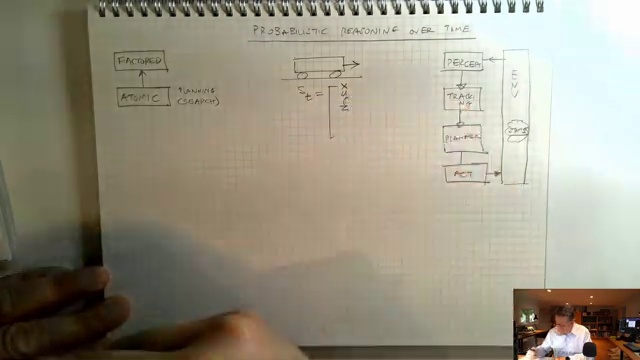 PROBABILISTIC REASONING OVER TIME
FACTORED
ATOMIC
PLANNING
(SEARCH)
S_t =
X
Y
Z
PERCEPT
TRACKI
NG
PLANNER
ACT
ENV